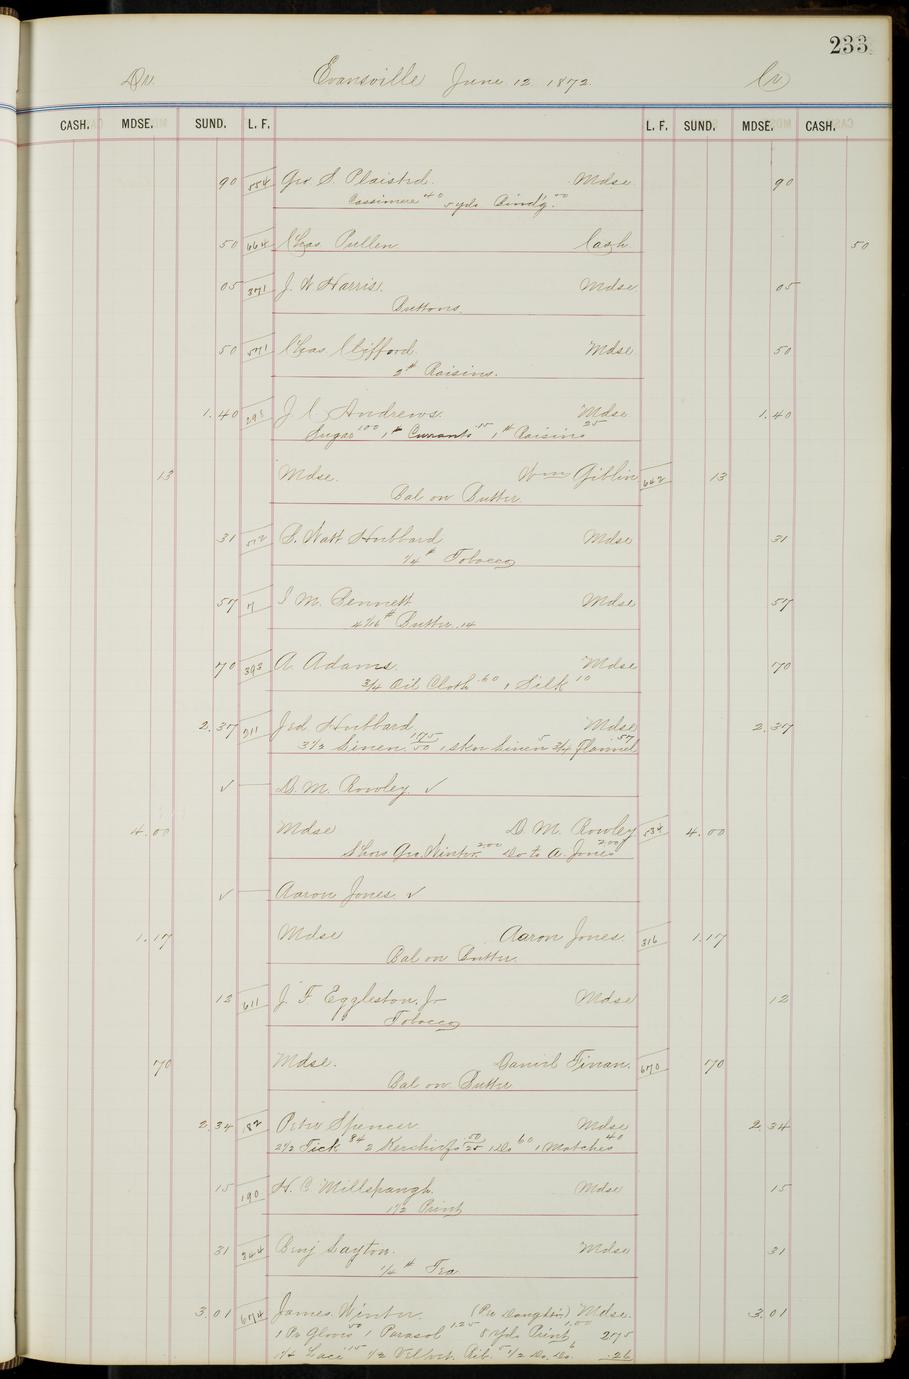 233
Dr. Evansville June 12 1872. Cr
CASH. MDSE. SUND. L. F. L. F. SUND. MDSE. CASH.
90 554 Geo S. Plaisted. Mdse 90
Cassimere 40 5 yds Bind'g. 50
50 664 Chas Pullen Cash 50
05 371 J. W Harris. Mdse 05
Buttons.
50 571 Chas Clifford Mdse 50
2# Raisins.
1.40 293 J C Andrews. Mdse 1.40
Sugar 1 00 1# Currants 15 1# Raisins 25
13 Mdse. Wm Giblin 662 13
Bal on Butter
31 572 S. Watt Hubbard Mdse 31
1/4# Tobacco
57 7 I M. Bennett Mdse 57
4 1/16# Butter .14
70 393 A. Adams. Mdse 70
3/4 Oil Cloth .60 1 Silk 10
2.37 211 Jed Hubbard Mdse 2.37
3 1/2 Linen 1 75/50 1 sken Linen 5 3/4 Flannel .57
✓ D. M. Rowley ✓
4.00 Mdse D. M. Rowley 534 4.00
Shoes Geo. Winter 2.00 Do to A. Jones 2.00
✓ Aaron Jones ✓
1.17 Mdse Aaron Jones. 316 1.17
Bal on Butter.
12 611 J. F Eggleston. Jr Mdse 12
Tobacco
70 Mdse. Daniel Finan. 670 70
Bal on Butter
2.34 182 Peter Spencer Mdse 2.34
2 1/2 Tick 84 2 Kerchiefs 50/25 1 Do 60 1 Matches 40
15 190 H. C. Millspaugh. Mdse 15
1 1/2 Print
31 344 Benj Layton. Mdse 31
1/4# Tea
3.01 674 James Winter. (Per Daughter) Mdse. 3.01
1 Pr Gloves 50 1 Parasol 1.25 8 yds Print 1.00 2 75
1 1/4 Lace 15 1/2 Velvet. Rib. 5 1/2 Do. Do. 6 .26